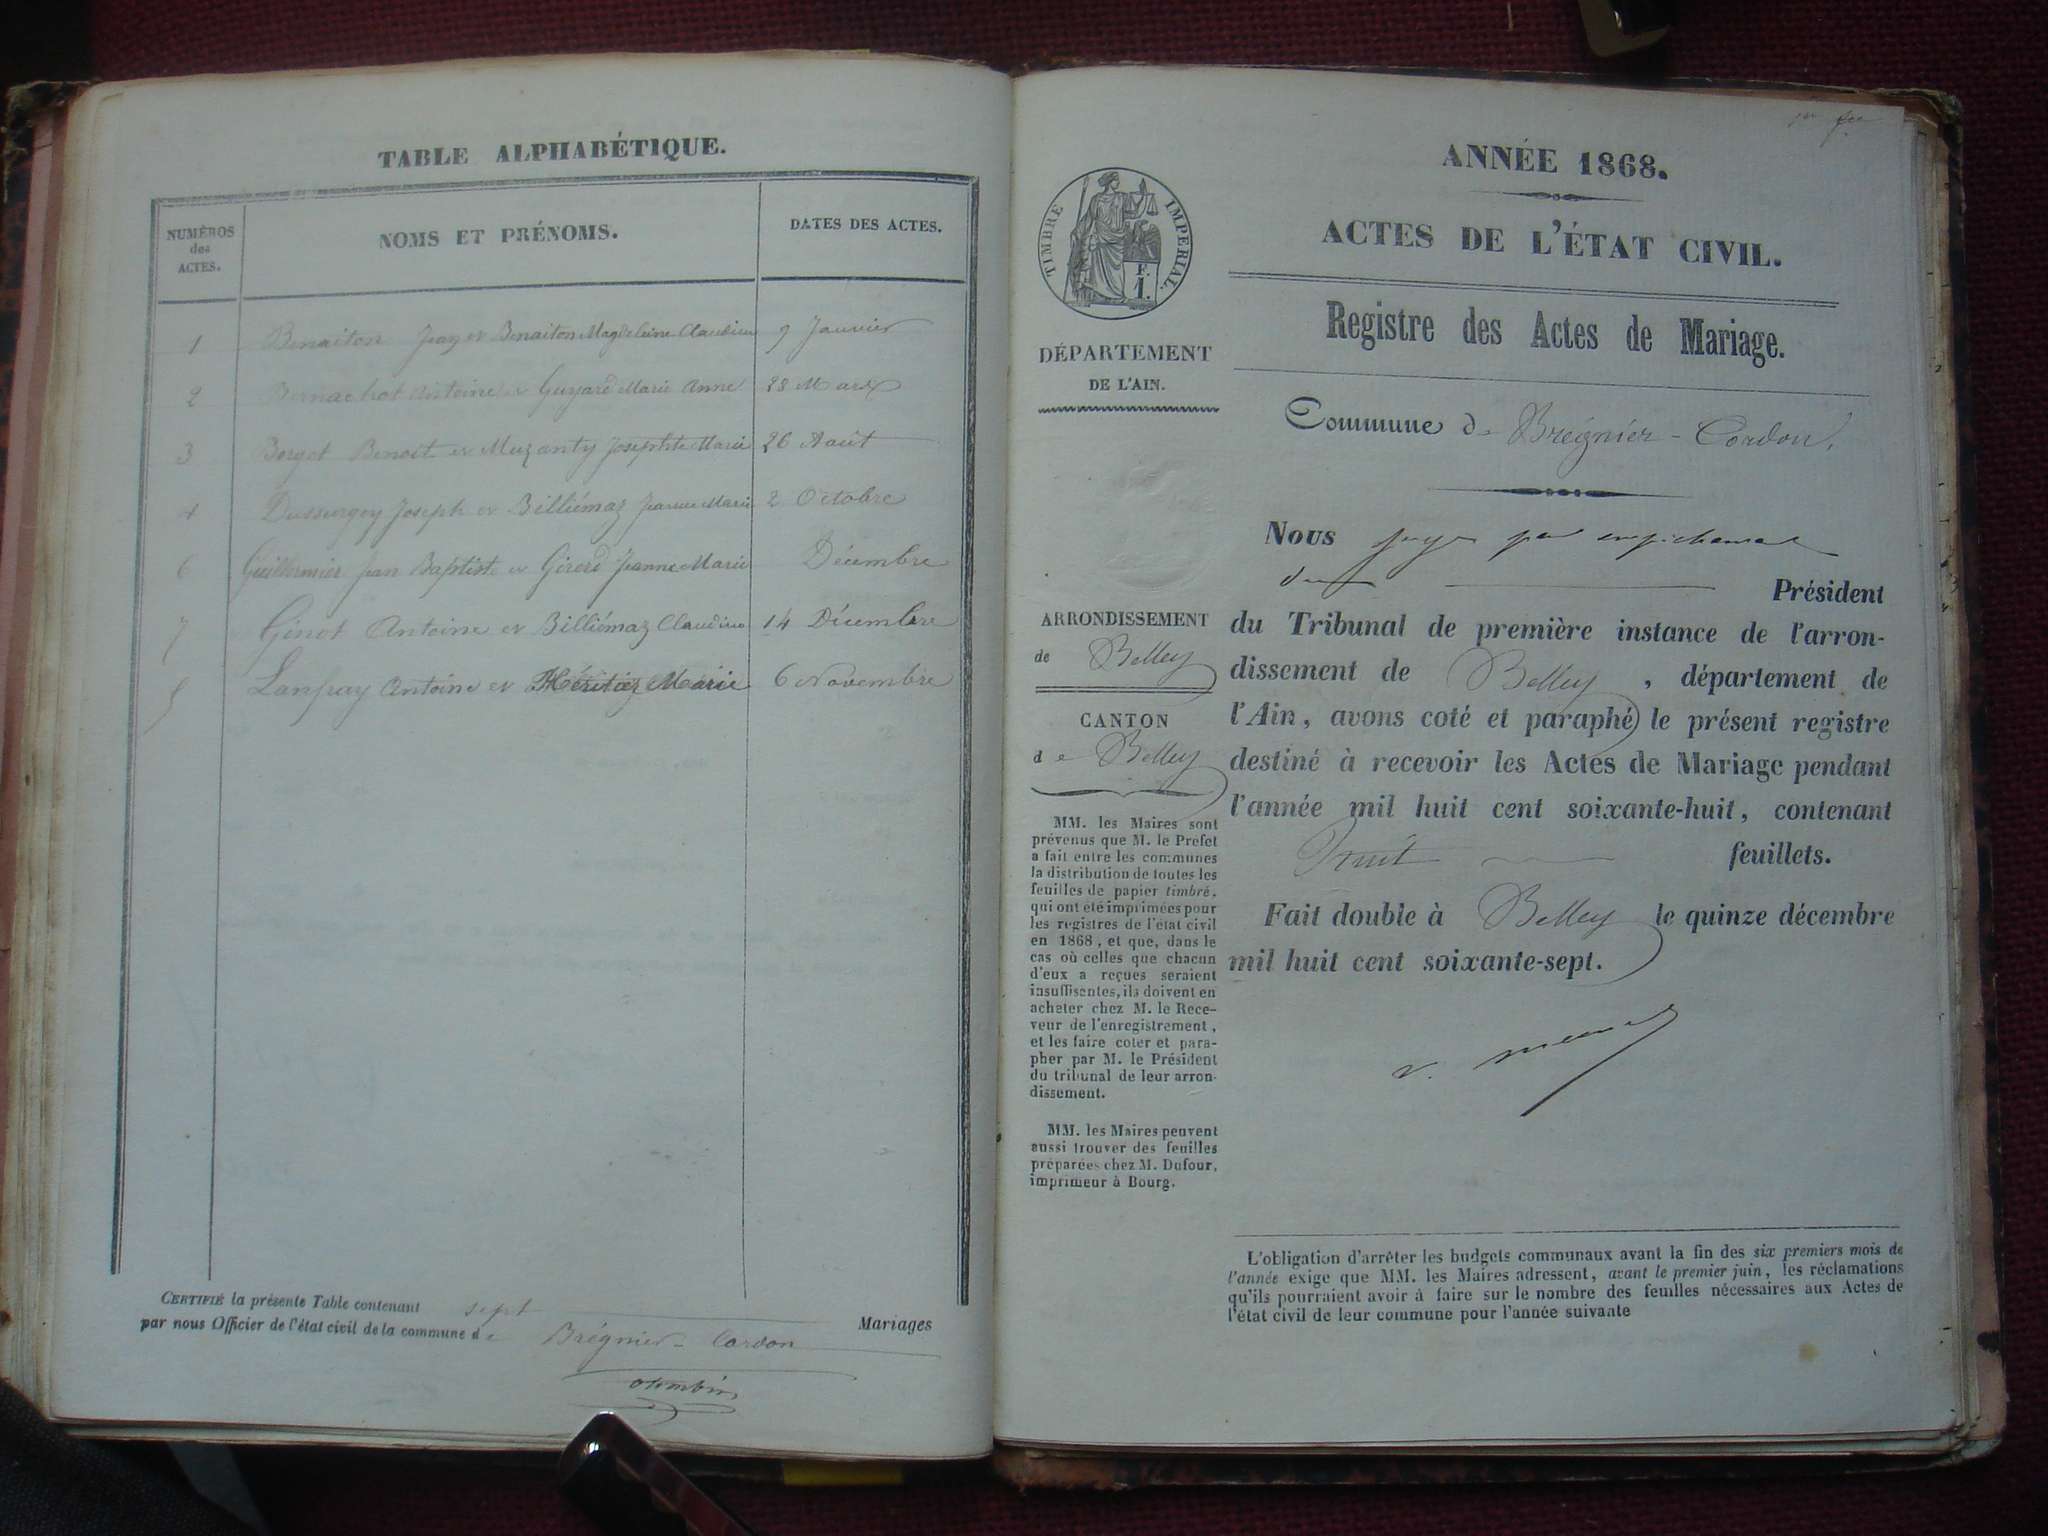 TABLE ALPHABÉTIQUE.
NUMÉROS des ACTES.
NOMS ET PRÉNOMS.
DATES DES ACTES.
1 Benaiton Jean et Benaiton Magdeleine Claudine 9 Janvier
2 Bernachot Antoine et Guyard Marie Anne 28 Mars
3 Borget Benoit et Muzanty Josephte Marie 26 Août
4 Dussurgey Joseph et Billiémaz Jeanne Marie 2 Octobre
6 Guillermier Jean Baptiste et Girerd Jeanne Marie Décembre
7 Ginot Antoine et Billiémaz Claudine 14 Décembre
5 Lanfray Antoine et Héritier Marie 6 Novembre
CERTIFIÉ la présente Table contenant sept Mariages
par nous Officier de l'état civil de la commune de Brégnier-Cordon
ANNÉE 1868.
ACTES DE L'ÉTAT CIVIL.
Registre des Actes de Mariage.
TIMBRE IMPERIAL.
F.
1.
DÉPARTEMENT
DE L'AIN.
Commune de Brégnier-Cordon.
ARRONDISSEMENT
de Belley
CANTON
de Belley
MM. les Maires sont
prévenus que M. le Prefet
a fait entre les communes
la distribution de toutes les
feuilles de papier timbré,
qui ont été imprimées pour
les registres de l'état civil
en 1868, et que, dans le
cas où celles que chacun
d'eux a reçues seraient
insuffisentes, ils doivent en
acheter chez M. le Rece-
veur de l'enregistrement,
et les faire coter et para-
pher par M. le Président
du tribunal de leur arron-
dissement.
MM. les Maires peuvent
aussi trouver des feuilles
préparées chez M. Dufour,
imprimeur à Bourg.
Nous juge par empêchement
du Président
du Tribunal de première instance de l'arron-
dissement de Belley, département de
l'Ain, avons coté et paraphé le présent registre
destiné à recevoir les Actes de Mariage pendant
l'année mil huit cent soixante-huit, contenant
huit feuillets.
Fait double à Belley le quinze décembre
mil huit cent soixante-sept.
L'obligation d'arrêter les budgets communaux avant la fin des six premiers mois de
l'année exige que MM. les Maires adressent, avant le premier juin, les réclamations
qu'ils pourraient avoir à faire sur le nombre des feuilles nécessaires aux Actes de
l'état civil de leur commune pour l'année suivante